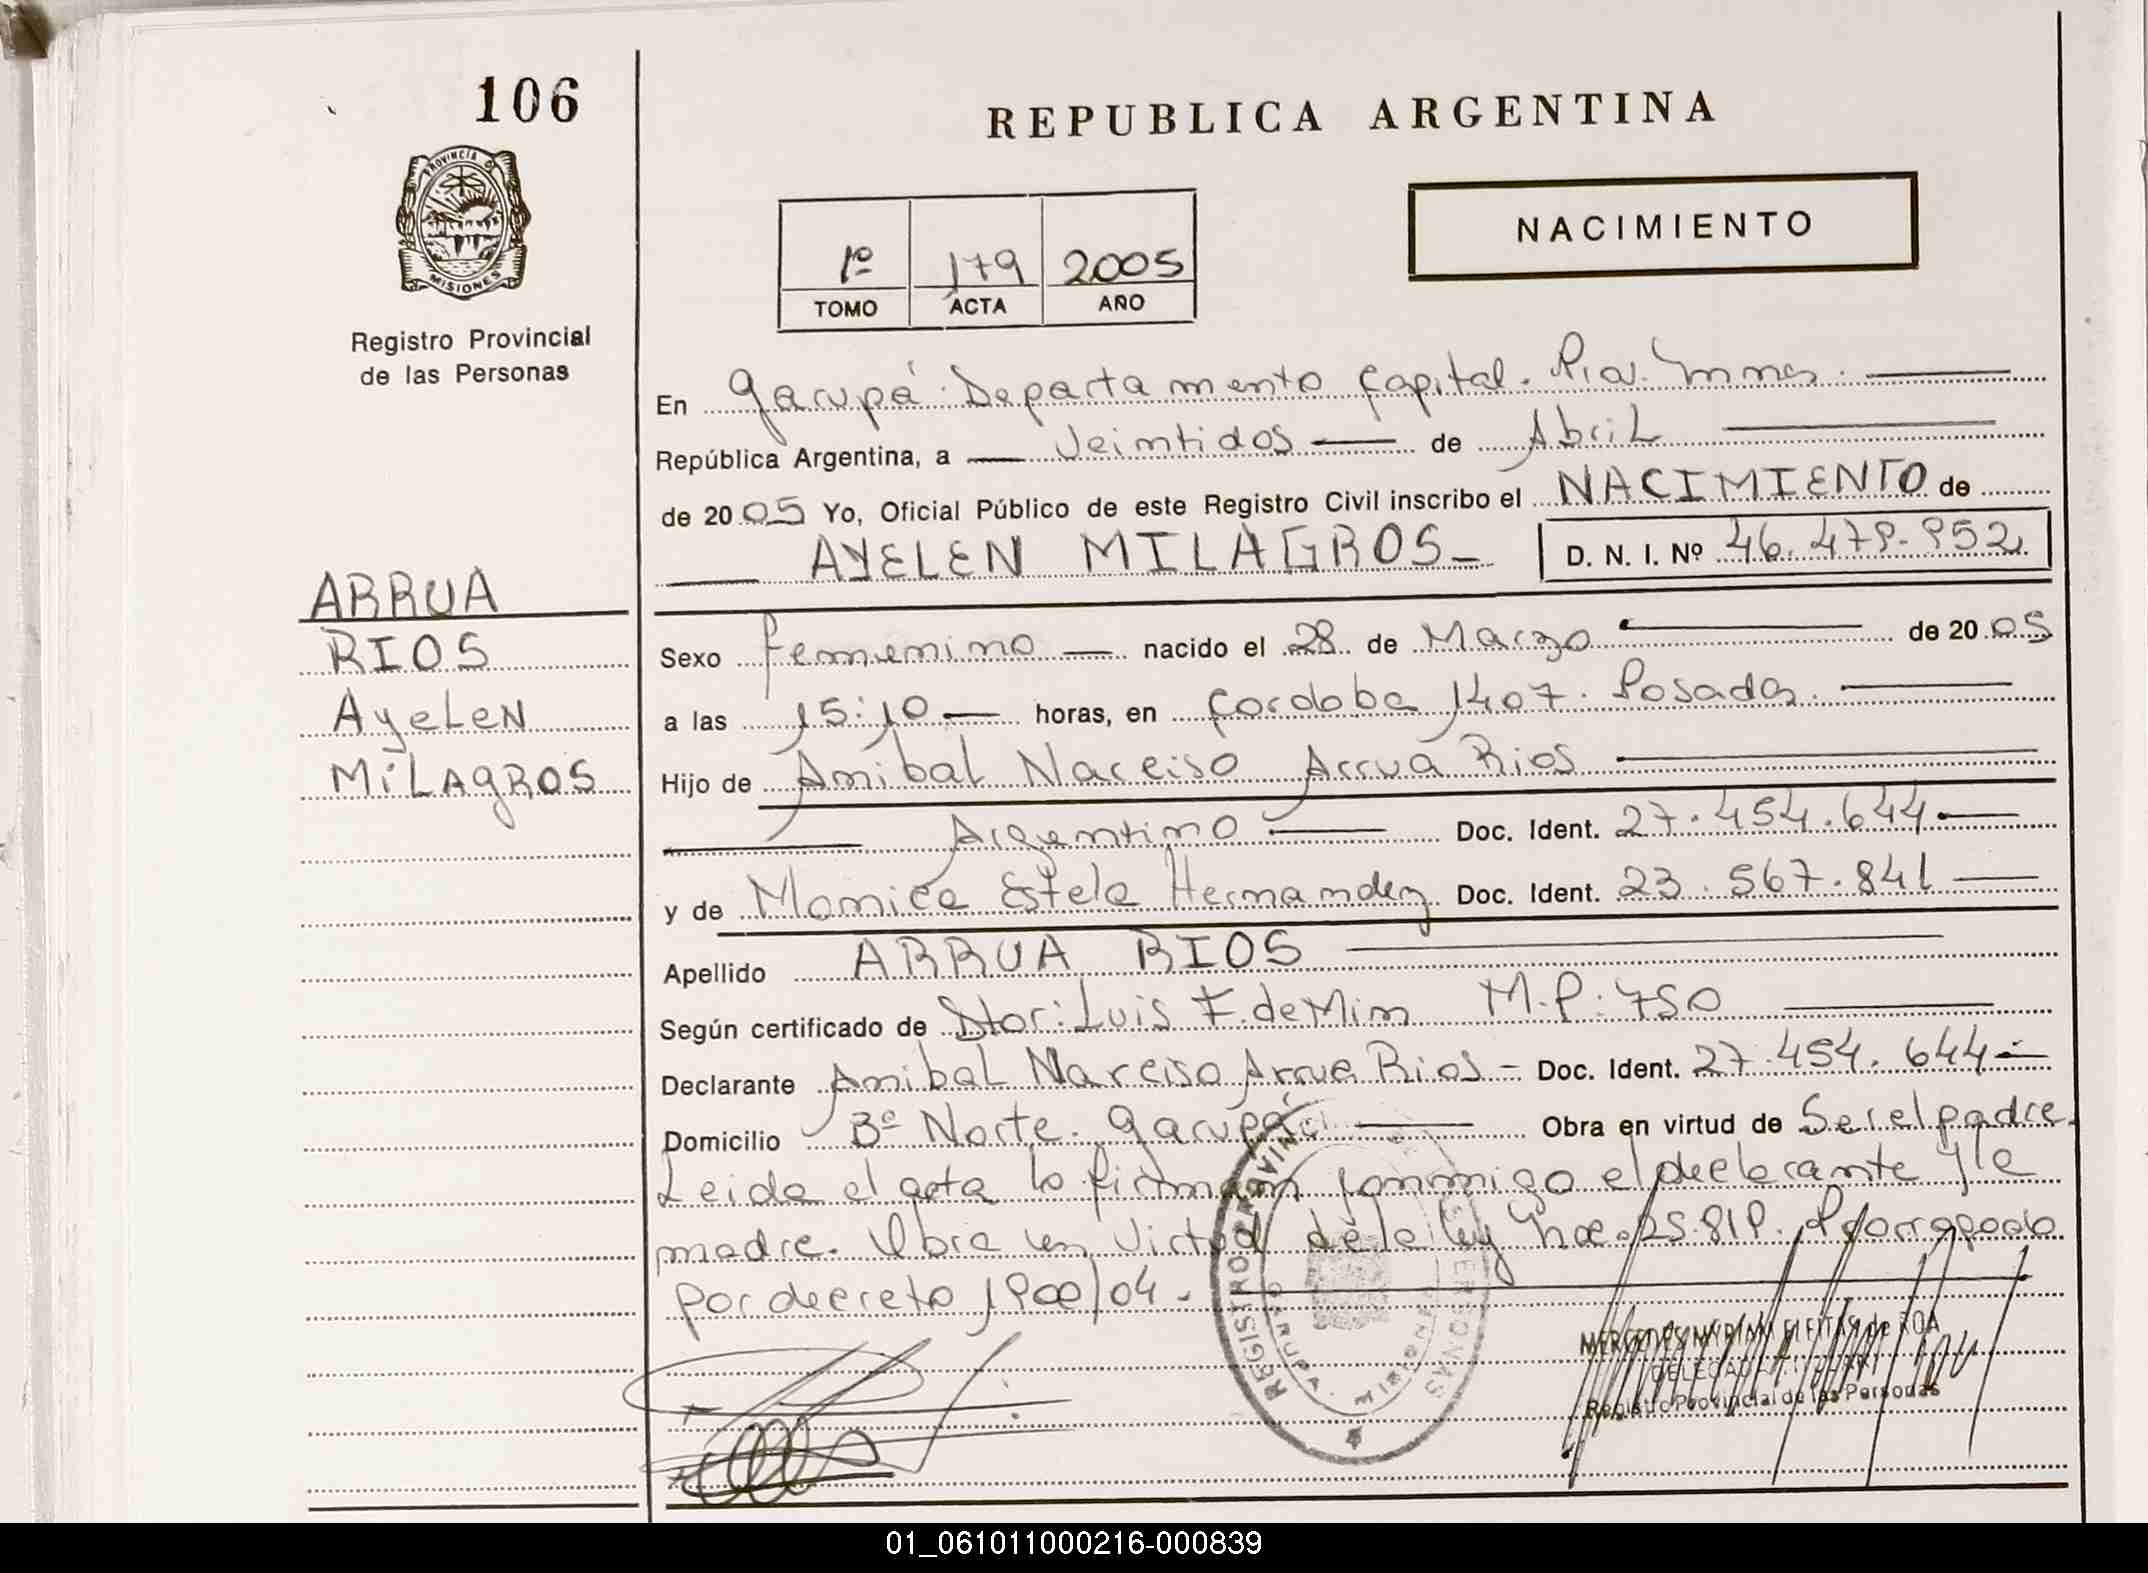 106
REPUBLICA ARGENTINA
PROVINCIA DE
MISIONES
NACIMIENTO
1º 179 2005
TOMO ACTA AÑO
Registro Provincial
de las Personas
En Garupá Departamento Capital. Pia. Mnes.
República Argentina, a Veintidos de Abril
de 2005 Yo, Oficial Público de este Registro Civil inscribo el NACIMIENTO de
AYELEN MILAGROS D. N. I. Nº 46.479.952
ARRUA
RIOS
Ayelen
Milagros
Sexo Femenino nacido el 28 de Marzo de 2005
a las 15:10 horas, en Cordoba 1407. Posadas.
Hijo de Anibal Narciso Arrua Rios
Argentino Doc. Ident. 27.454.644
y de Monica Estela Hernandez Doc. Ident. 23.567.841
Apellido ARRUA RIOS
Según certificado de Dtor: Luis F. deMim M.P: 750
Declarante Anibal Narciso Arrua Rios - Doc. Ident. 27.454.644
Domicilio Bº Norte. Garupá Obra en virtud de Ser el padre.
Leida el acta la firman conmigo el declarante y la
madre. Obra en virtud de la ley nac. 25.819. Prorrogado
por decreto 1900/04.
REGISTRO PROVINCIAL PERSONAS
GARUPA MISIONES
MERCEDES MYRIAM FLEITAS de ROA
DELEGADA
Registro Provincial de las Personas
01_061011000216-000839